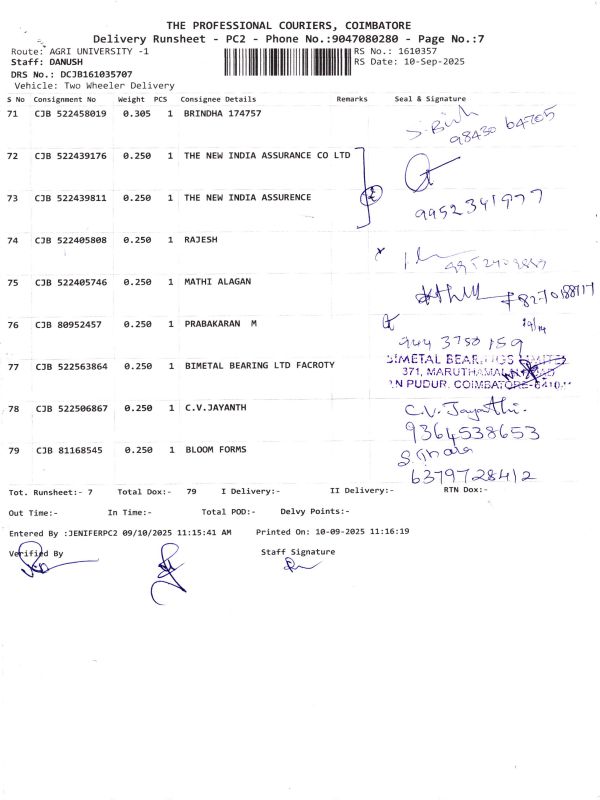 THE PROFESSIONAL COURIERS, COIMBATORE
Delivery Runsheet - PC2 - Phone No.:9047080280 - Page No.:7
Route: AGRI UNIVERSITY -1 RS No.: 1610357
Staff: DANUSH RS Date: 10-Sep-2025
DRS No.: DCJB161035707
Vehicle: Two Wheeler Delivery
S No Consignment No Weight PCS Consignee Details Remarks Seal & Signature
71 CJB 522458019 0.305 1 BRINDHA 174757
98430 64705
72 CJB 522439176 0.250 1 THE NEW INDIA ASSURANCE CO LTD
73 CJB 522439811 0.250 1 THE NEW INDIA ASSURENCE
9952341977
74 CJB 522405808 0.250 1 RAJESH
75 CJB 522405746 0.250 1 MATHI ALAGAN
76 CJB 80952457 0.250 1 PRABAKARAN M
944 3750 159
77 CJB 522563864 0.250 1 BIMETAL BEARING LTD FACROTY
371, MARUTHAMALAI ROAD
PUDUR, COIMBATORE-6410
78 CJB 522506867 0.250 1 C.V.JAYANTH C.V. Jayanthi.
9364538653
79 CJB 81168545 0.250 1 BLOOM FORMS
6379728412
Tot. Runsheet:- 7 Total Dox:- 79 I Delivery:- II Delivery:- RTN Dox:-
Out Time:- In Time:- Total POD:- Delvy Points:-
Entered By :JENIFERPC2 09/10/2025 11:15:41 AM Printed On: 10-09-2025 11:16:19
Verified By Staff Signature